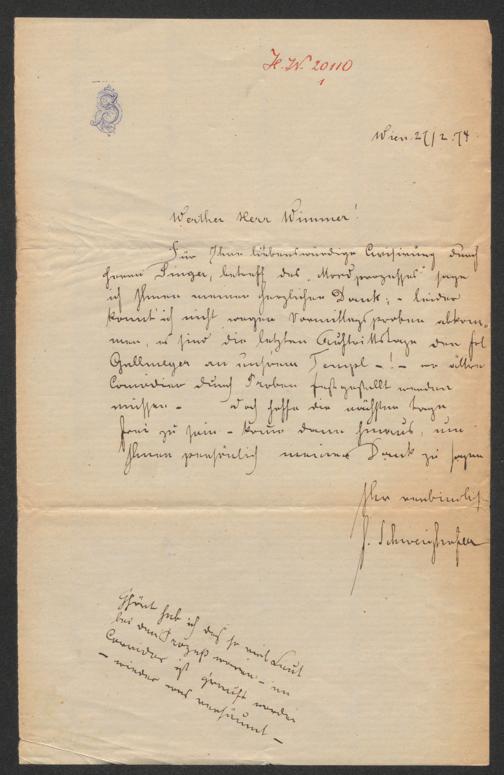 H.W. 20110
1
Wien 27/2.74
Werther Herr Wimmer!
Für Ihre liebenswürdige Avisirung durch
Herrn Singer, betreff des „Mordprozesses" sage
ich Ihnen meinen herzlichen Dank; – leider
konnt' ich nicht wegen Vormittagsproben abkom-
men, es sind die letzten Auftrittstage der Frl
Gallmeyer an unserem Tempel –! – wo
Comödien durch Proben festgestellt werden
müssen – Doch hoffe die nächsten Tage
frei zu sein – komme dann hinaus, um
Ihnen persönlich meinen Dank zu sagen
Ihr verbindlichst
F. Schweighofer
Gehört hab ich das so viel Leut
bei den Prozeß waren – im
Corridor ist gerauft worden
– wieder was versäumt –